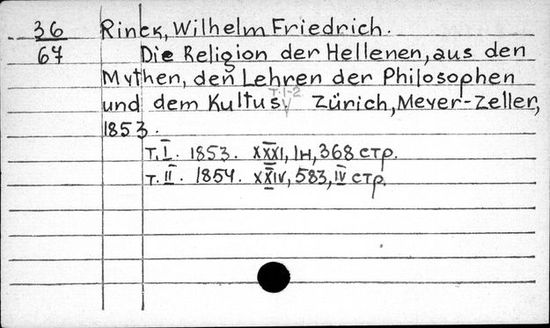 36 Rinck, Wilhelm Friedrich.
67 Die Religion der Hellenen, aus den
Mythen, den Lehren der Philosophen
und dem Kultus, т.1-2 Zürich, Meyer-Zeller,
1853.
т. I. 1853. XXXI, 1н, 368 стр.
т. II. 1854. XXIV, 583, IV стр.